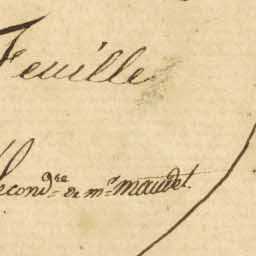 Feuille
Secondre de mr maudet.